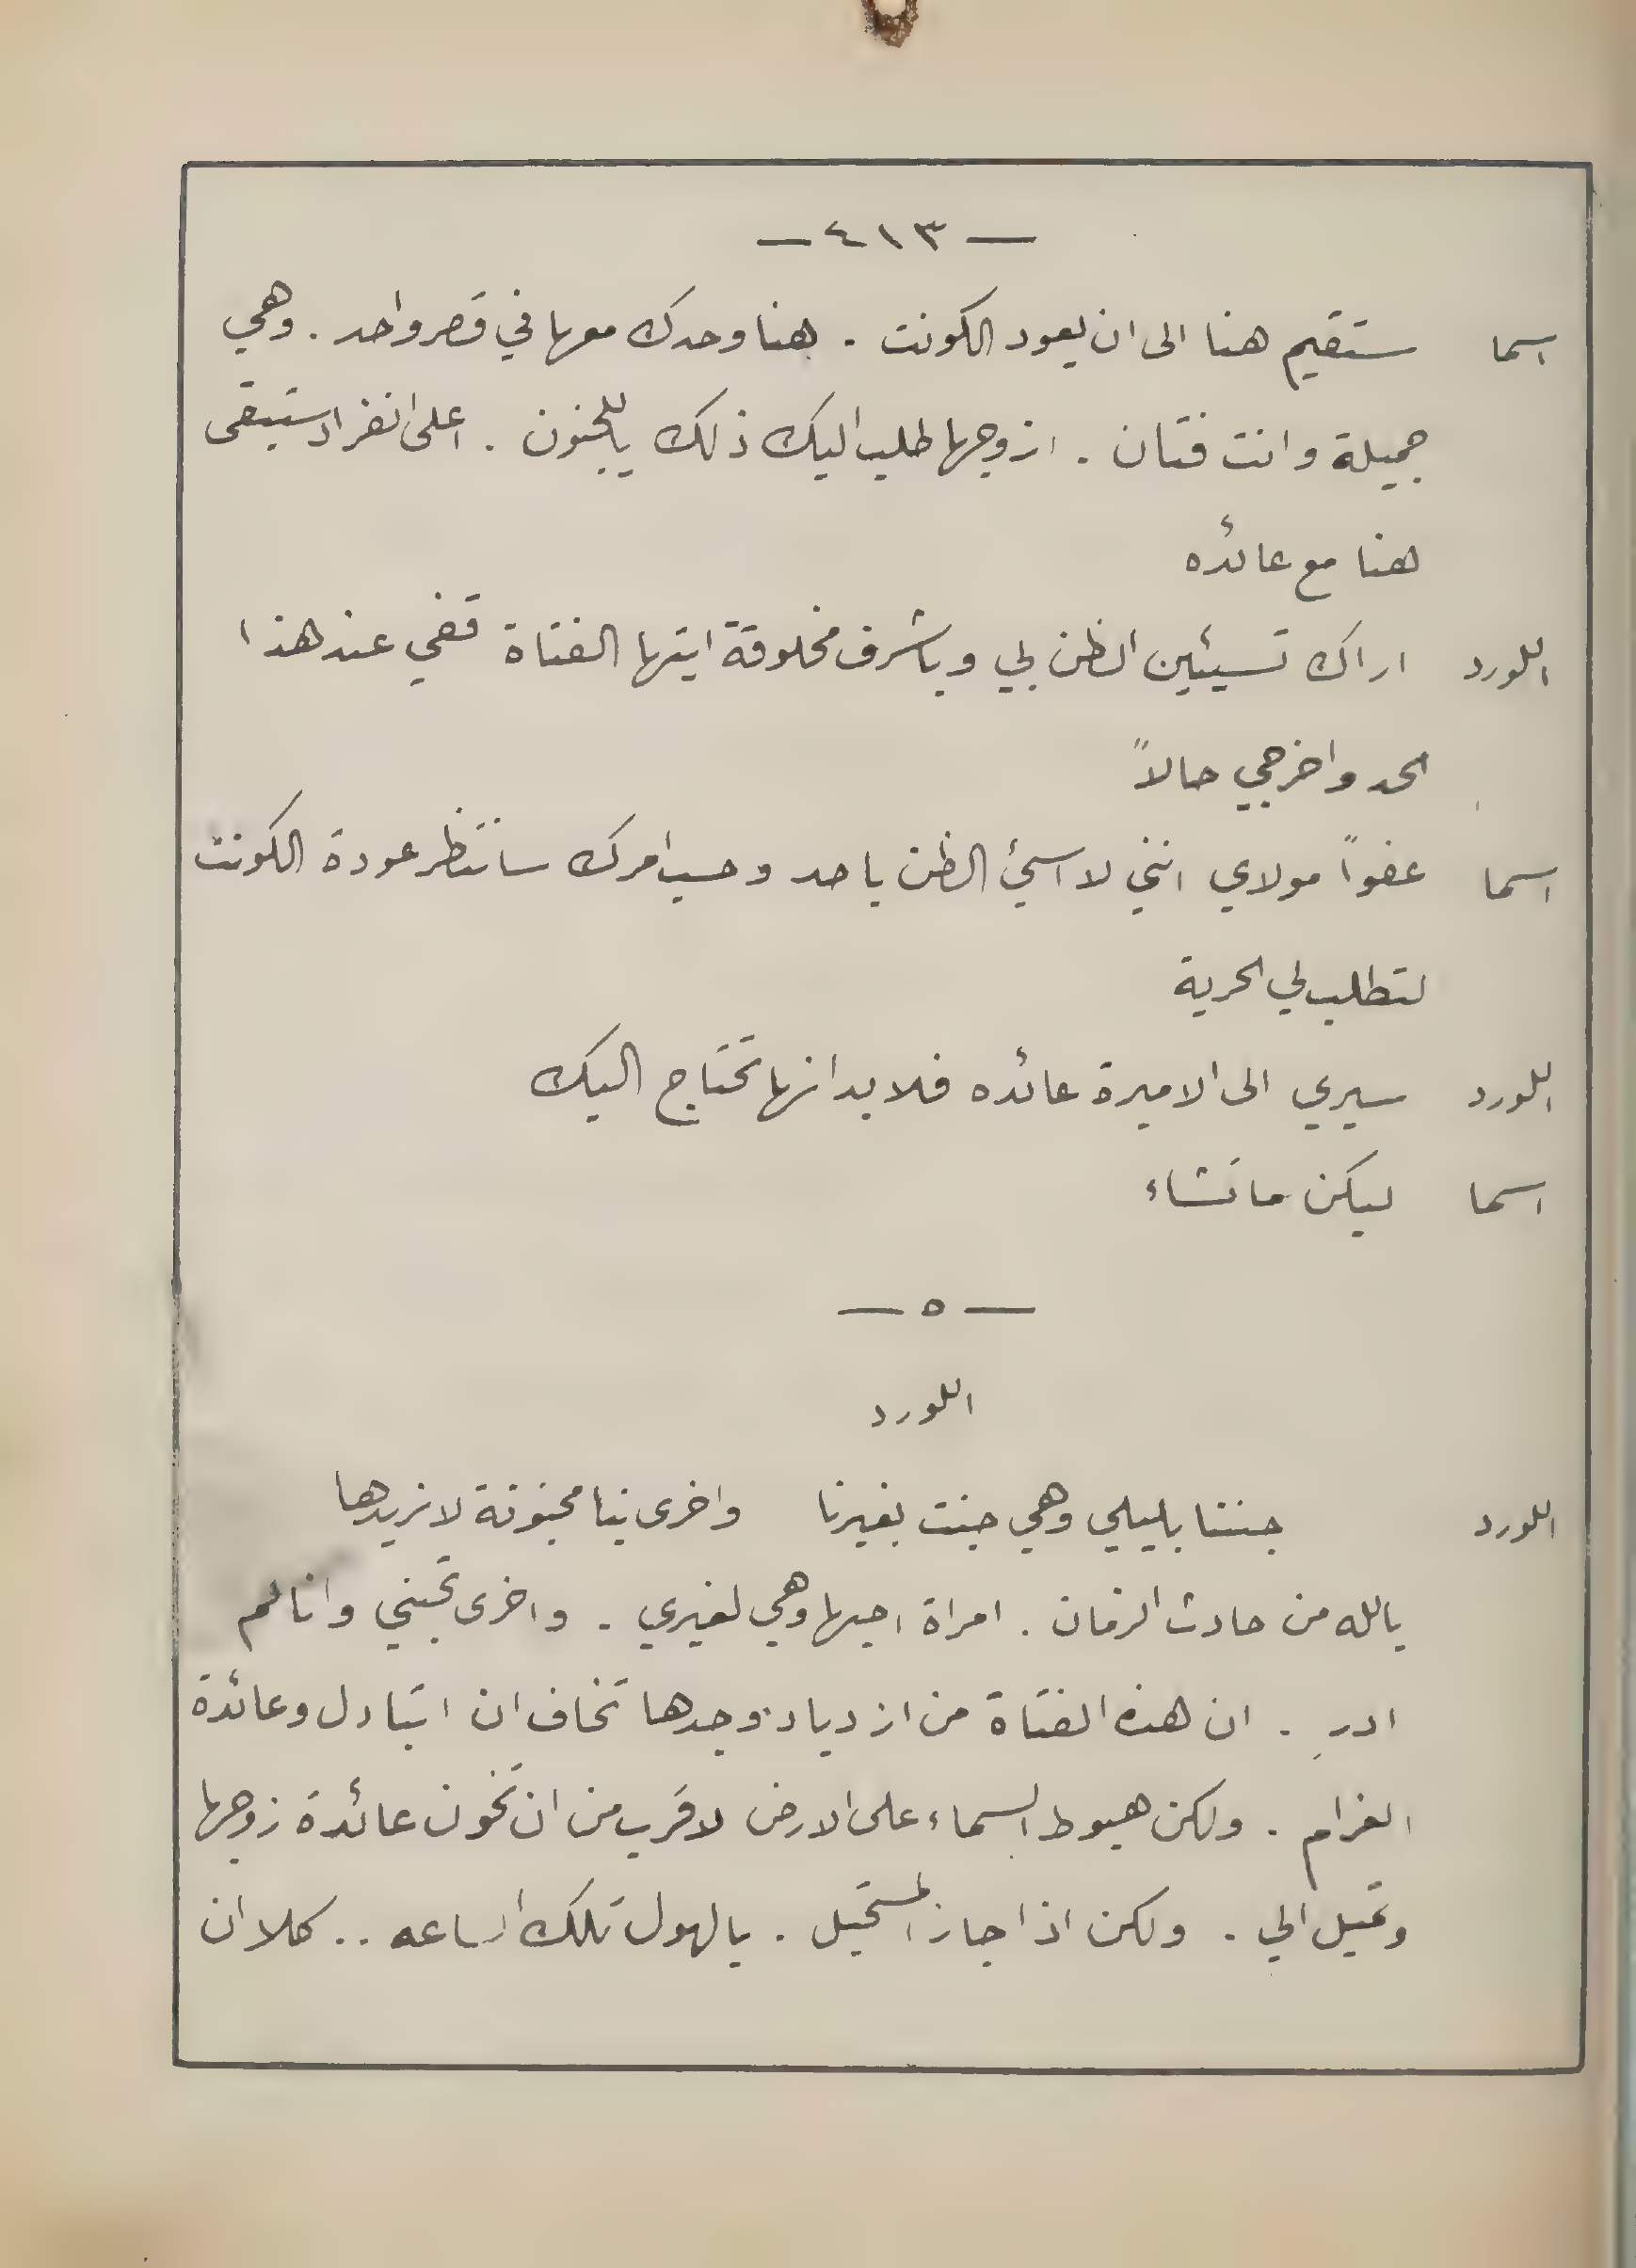 — ٤١٣ —
اسما ستقيم هنا الى ان يعود الكونت . هنا وحدك معها في قصر واحد . وهي
جميلة وانت فتان . ازوجها طلب اليك ذلك ياللجنون . اعلى انفراد ستبقى
هنا مع عائده
اللورد اراك تسيئين الظن بي ويا شرف مخلوقة ايتها الفتاة قفي عند هذا
الحد واخرجي حالاً
اسما عفواً مولاي انني لا اسيئ الظن باحد وحسب امرك سانتظر عودة الكونت
لتطلب لي الحرية
اللورد سيري الى الاميرة عائده فلا بد انها تحتاج اليك
اسما ليكن ما تشاء
— ٥ —
اللورد
اللورد جننا بليلي وهي جنت بغيرنا واخرى بنا مجنونة لا نريدها
يالله من حادث الزمان . امراة احبها وهي لغيري . واخرى تحبني وانا لم
ادرِ . ان هذه الفتاة من ازدياد وجدها تخاف ان اتبادل وعائدة
الغرام . ولكن هبوط السماء على الارض لاقرب من ان تخون عائدة زوجها
وتميل الي . ولكن اذا جاز المستحيل . يا لهول تلك الساعه .. كلا ان